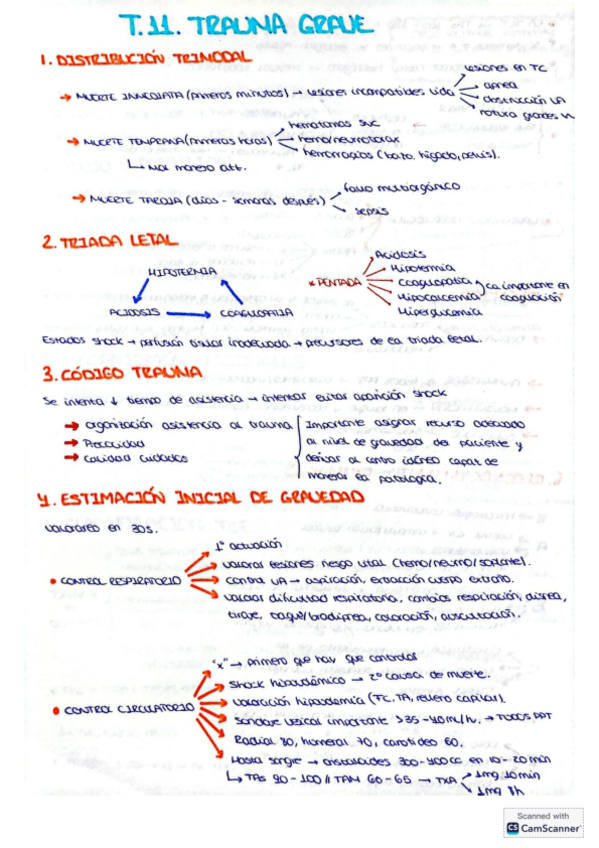 T.11. TRAUMA GRAVE
1. DISTRIBUCIÓN TRIMODAL
→ MUERTE INMEDIATA (primeros minutos) → lesiones incompatibles vida
lesiones en TC
apnea
destrucción VA
rotura grandes
→ MUERTE TEMPRANA (primeras horas)
hematomas SNC
hemo/neumotórax
hemorragias (bazo, hígado, pelvis).
↳ Mal manejo att.
→ MUERTE TARDÍA (días - semanas después)
fallo multiorgánico
sepsis
2. TRIADA LETAL
HIPOTERMIA
ACIDOSIS → COAGULOPATIA
* PENTADA
Acidosis
Hipotermia
Coagulopatía
Hipocalcemia
Hiperglucemia
ca importante en
coagulación
Estados shock → perfusión tisular inadecuada → precursores de la triada letal.
3. CÓDIGO TRAUMA
Se intenta ↓ tiempo de asistencia → intentar evitar aparición shock
→ organización asistencia al trauma
→ Precocidad
→ Calidad cuidados
Importante asignar recurso adecuado
al nivel de gravedad del paciente y
derivar al centro idóneo capaz de
manejar la patología.
4. ESTIMACIÓN INICIAL DE GRAVEDAD
Valorares en 30s.
• CONTROL RESPIRATORIO
1ª actuación
valorar lesiones riesgo vital (hemo/neumo/
Control VA → aspiración, extracción cuerpo extraño.
valorar dificultad respiratoria, cambios respiración, disnea,
tiraje, taqui/bradipnea, coloración, auscultación.
• CONTROL CIRCULATORIO
"x" → primero que hay que controlar
Shock hipovolémico → 2ª causa de muerte.
Valoración hipovolemia (TC, TA, relleno capilar).
Sondaje vesical importante > 35 - 40 ml/h. → TODOS PPT
Radial 80, humeral 70, carotídeo 60.
Hasta sangre → cristaloides 300-400 cc en 10 - 20 min
↳ TAS 90 - 100 // TAM 60 - 65 → TXA
1mg 10min
1mg 8h
Scanned with
CS CamScanner